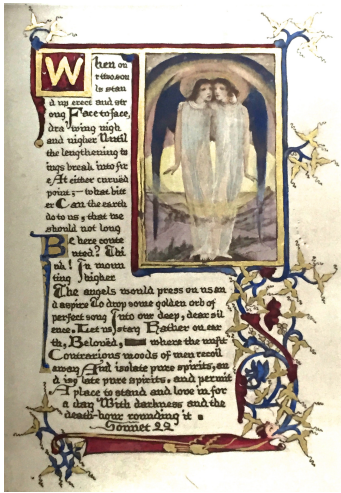 When ou
r two sou
ls stan
d up erect and str
ong Face to face,
drawing nigh
and nigher Until
the lengthening to
ings break into fir
e At either curved
point;— to what bitt
er Can the earth
do to us, that we
should not long
Be here conte
nted? Thi
nk! In moun
ting higher
The angels would press on us an
d aspire To drop some golden orb of
perfect song Into our deep, dear sil
ence. Let us stay Rather on ear
th, Beloved, where the unfit
Contrarious moods of men recoil
away And isolate pure spirits, an
d iso late pure spirits, and permit
A place to stand and love in for
a day With darkness and the
death-hour rounding it.
Sonnet 22